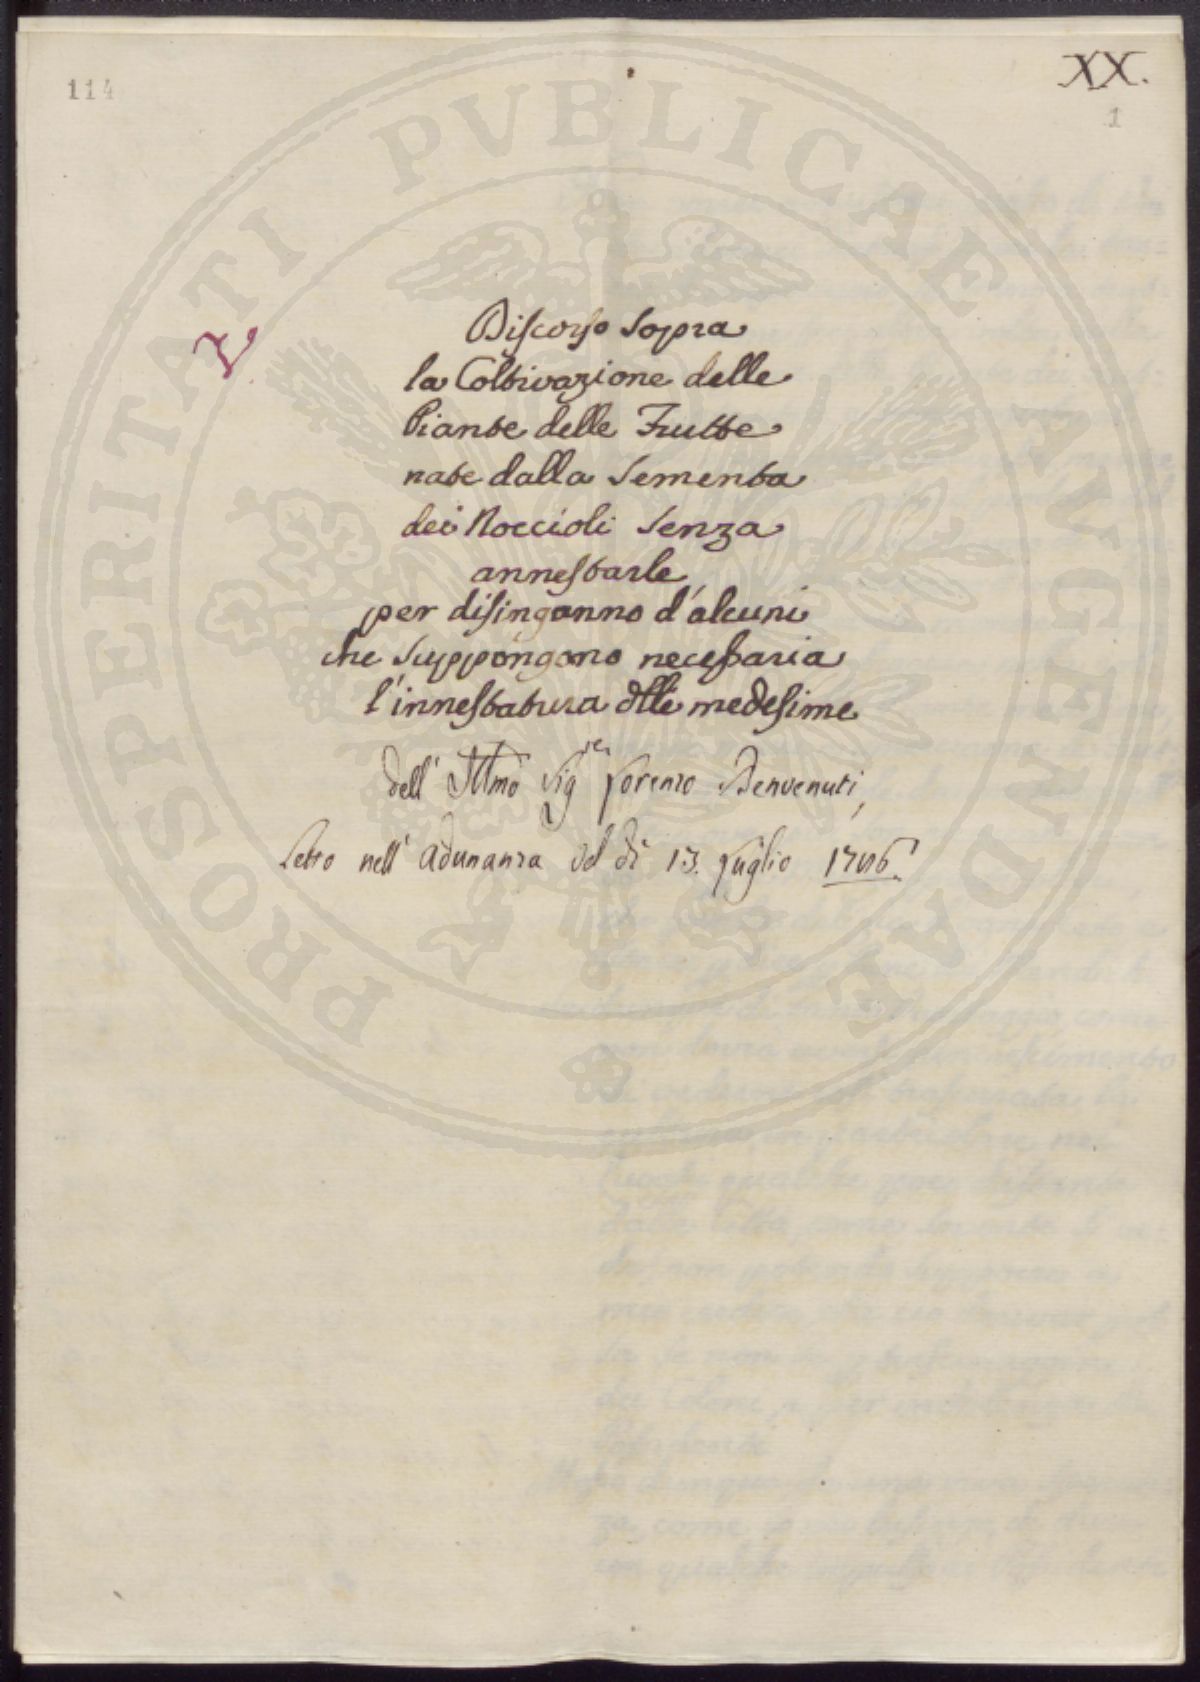 114
XX.
1
PROSPERITATI PUBLICAE AUGENDAE
Discorso Sopra
la Coltivazione delle
Piante delle Frutte
nate dalla Sementa
dei Noccioli Senza
annestarle
per disinganno d'alcuni
che suppongono necessaria
l'innestatura dlle medesime
dell' Illmo Sigre Lorenzo Benvenuti,
Letto nell' Adunanza del dì 13. Luglio